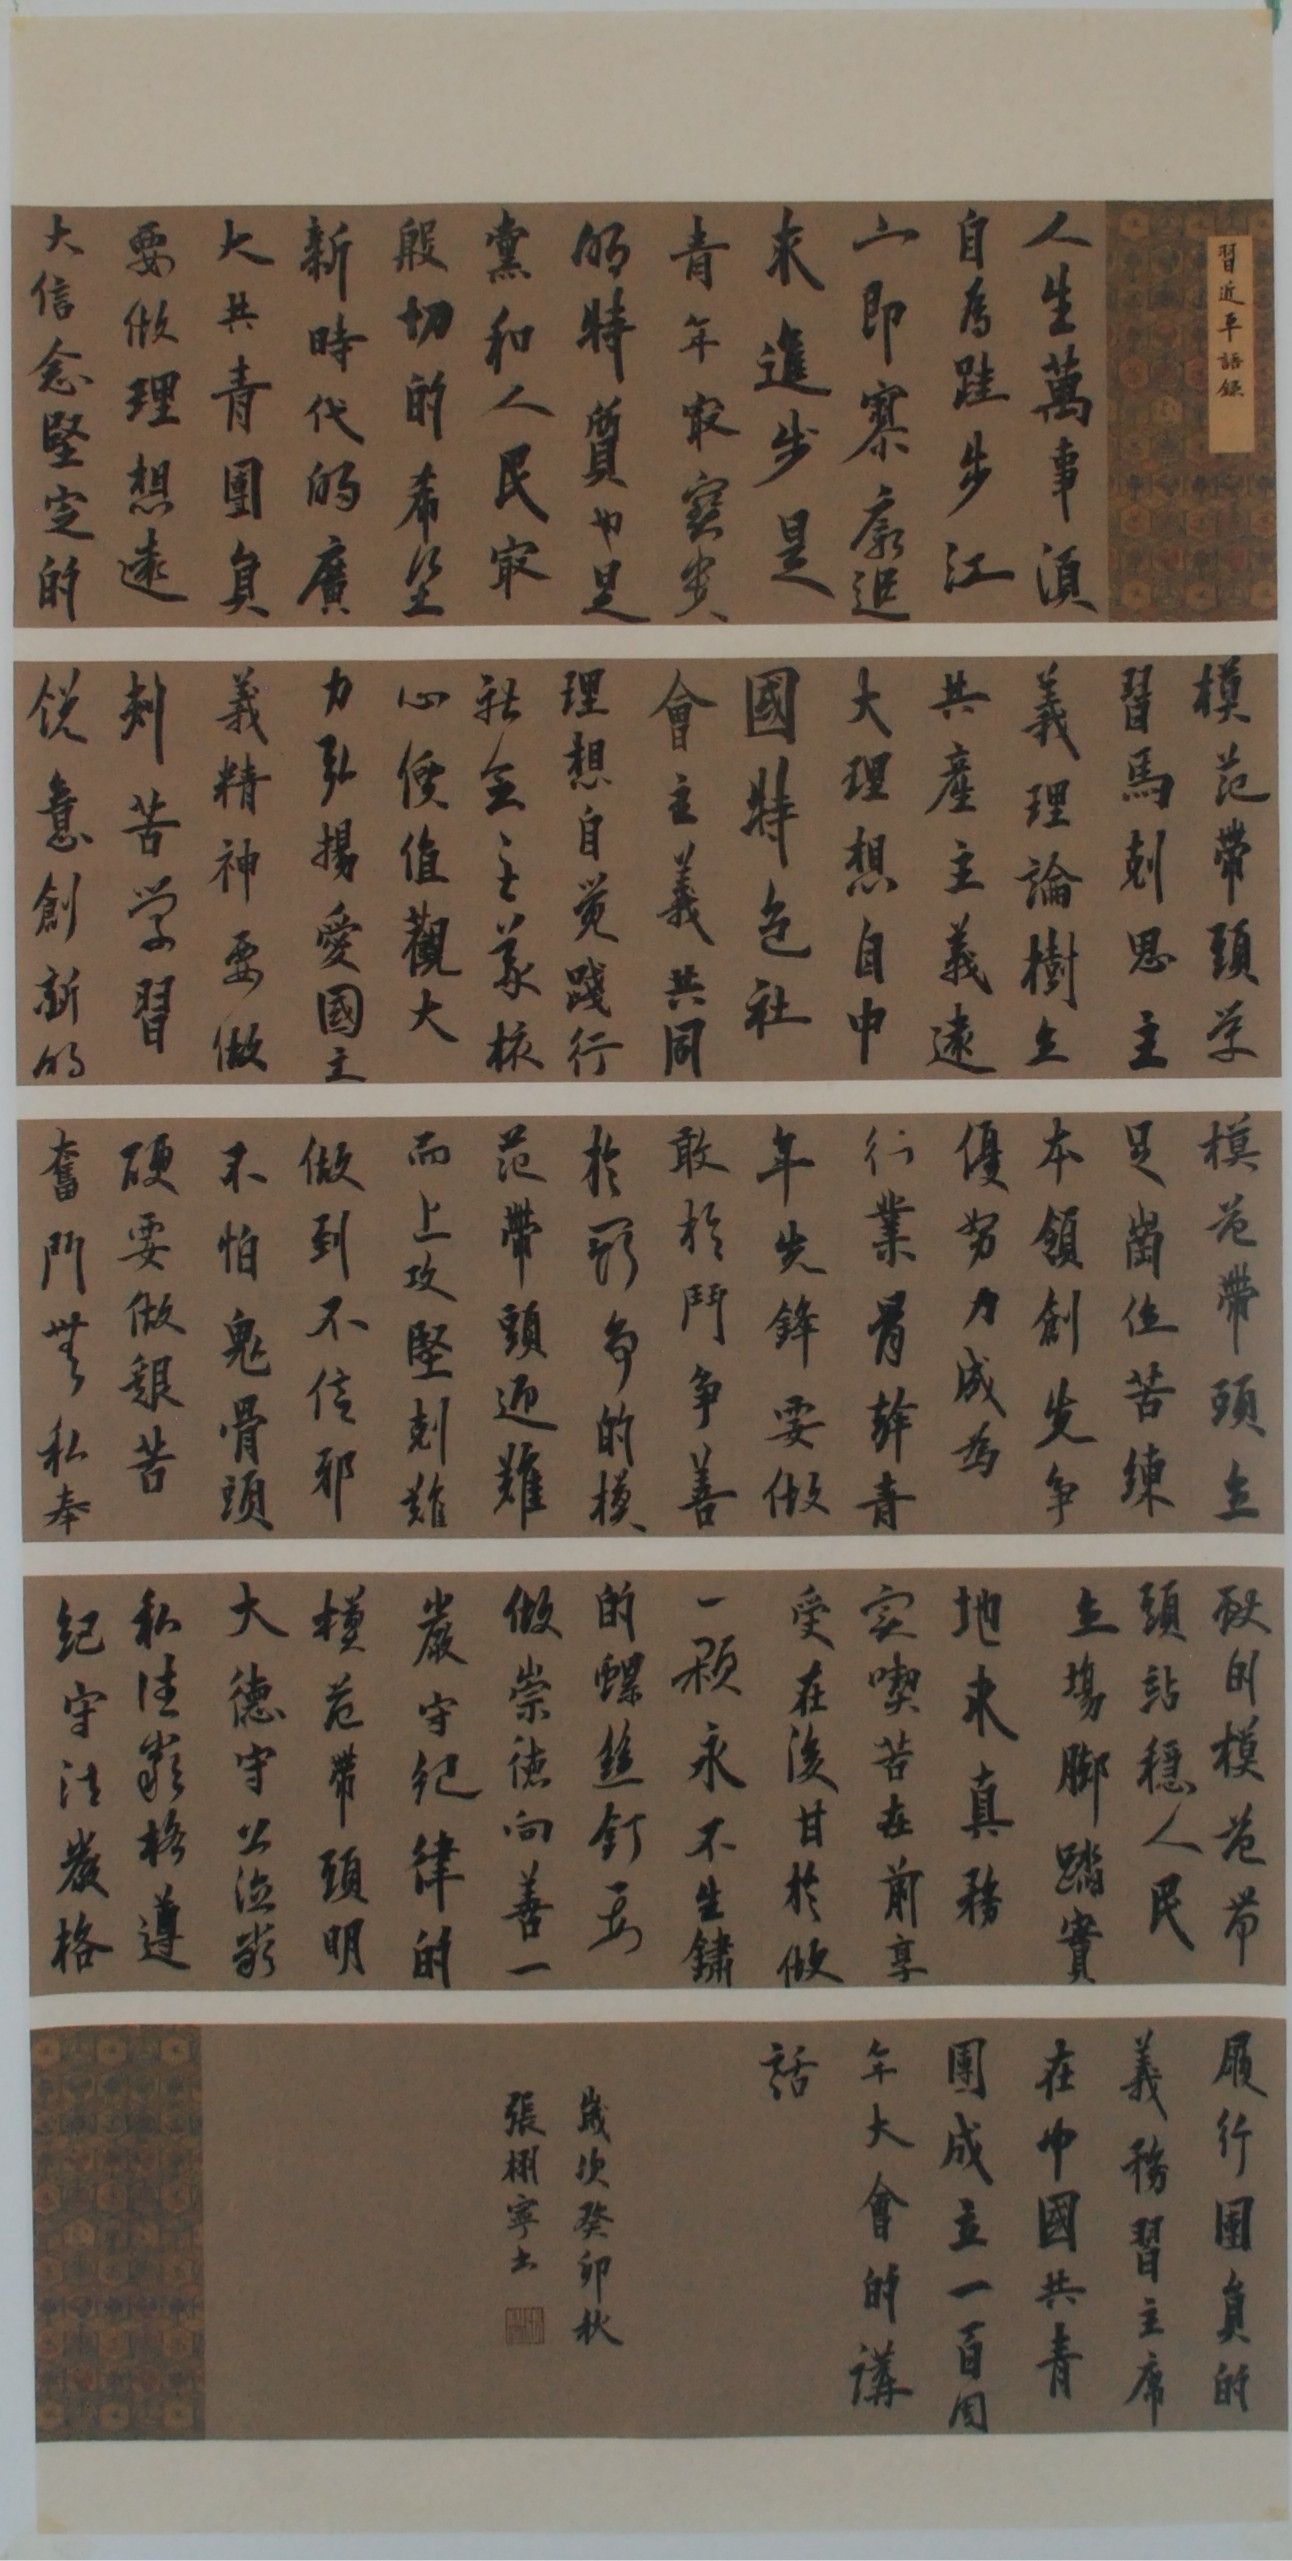 習近平語錄
人生萬事須
自為跬步江
山即寥廓追
求進步是
青年最寶貴
的特質也是
黨和人民最
殷切的希望
新時代的廣
大共青團員
要做理想遠
大信念堅定的
模范帶頭学
習馬剋思主
義理論樹立
共產主義遠
大理想自中
國特色社
會主義共同
理想自觉踐行
社会主義核
心價值觀大
力弘揚愛國主
義精神要做
刺苦学習
锐意創新的
模范帶頭立
足崗位苦練
本領創先争
優努力成為
行業骨幹青
年先鋒要做
敢於鬥争善
於鬥争的模
范帶頭迎難
而上攻堅剋難
做到不信邪
不怕鬼骨頭
硬要做艱苦
奮鬥無私奉
献的模范帶
頭站穩人民
立場腳踏實
地求真務
实喫苦在前享
受在後甘於做
一颗永不生鏽
的螺丝釘要
做崇德向善一
嚴守纪律的
模范帶頭明
大德守公德嚴
私德嚴格遵
纪守法嚴格
履行團員的
義務習主席
在中國共青
團成立一百周
年大會的講
話
歲次癸卯秋
張栩寧书